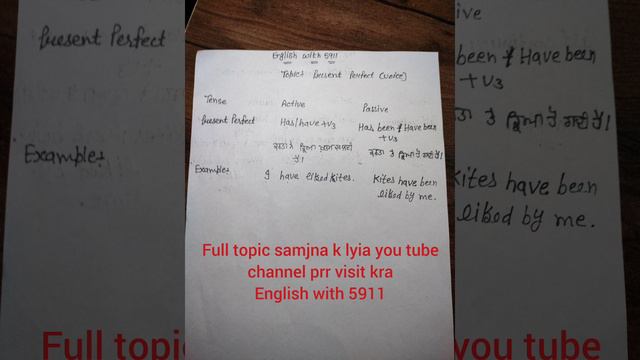 English with 5911
Topic:- Present Perfect (voice)
Tense Active Passive
Present Perfect Has/have +V3 Has been / Have been
+V3
Examples I have liked kites. Kites have been
liked by me.
Full topic samjna k lyia you tube
channel prr visit kra
English with 5911
Present Perfect
Examples
ive
been / Have been
+V3
Kites have been
liked by me.
Full topi
you tube